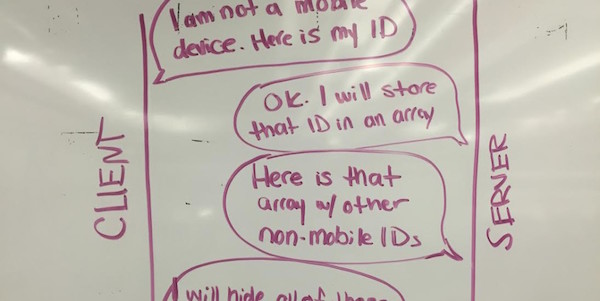 I am not a mobile
device. Here is my ID
OK. I will store
that ID in an array
Here is that
array w/ other
non-mobile IDs
I will hide all of these
CLIENT
SERVER